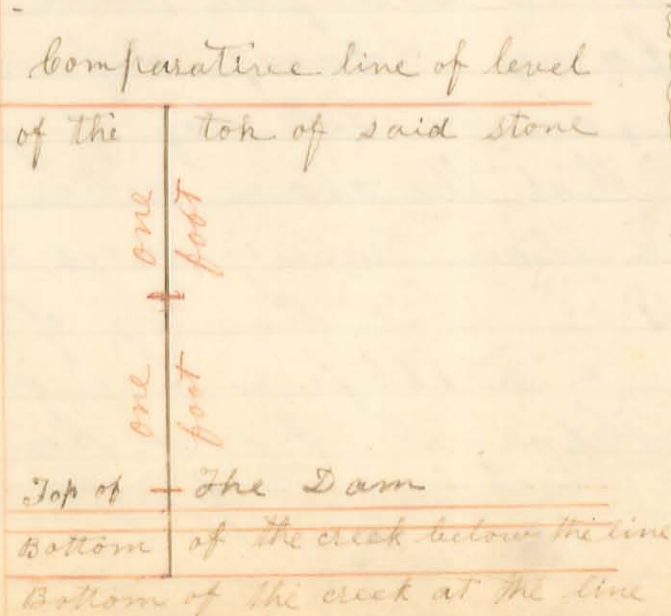 Comparative line of level
of the top of said stone
one foot
one foot
Top of The Dam
Bottom of the creek below the line
Bottom of the creek at the line